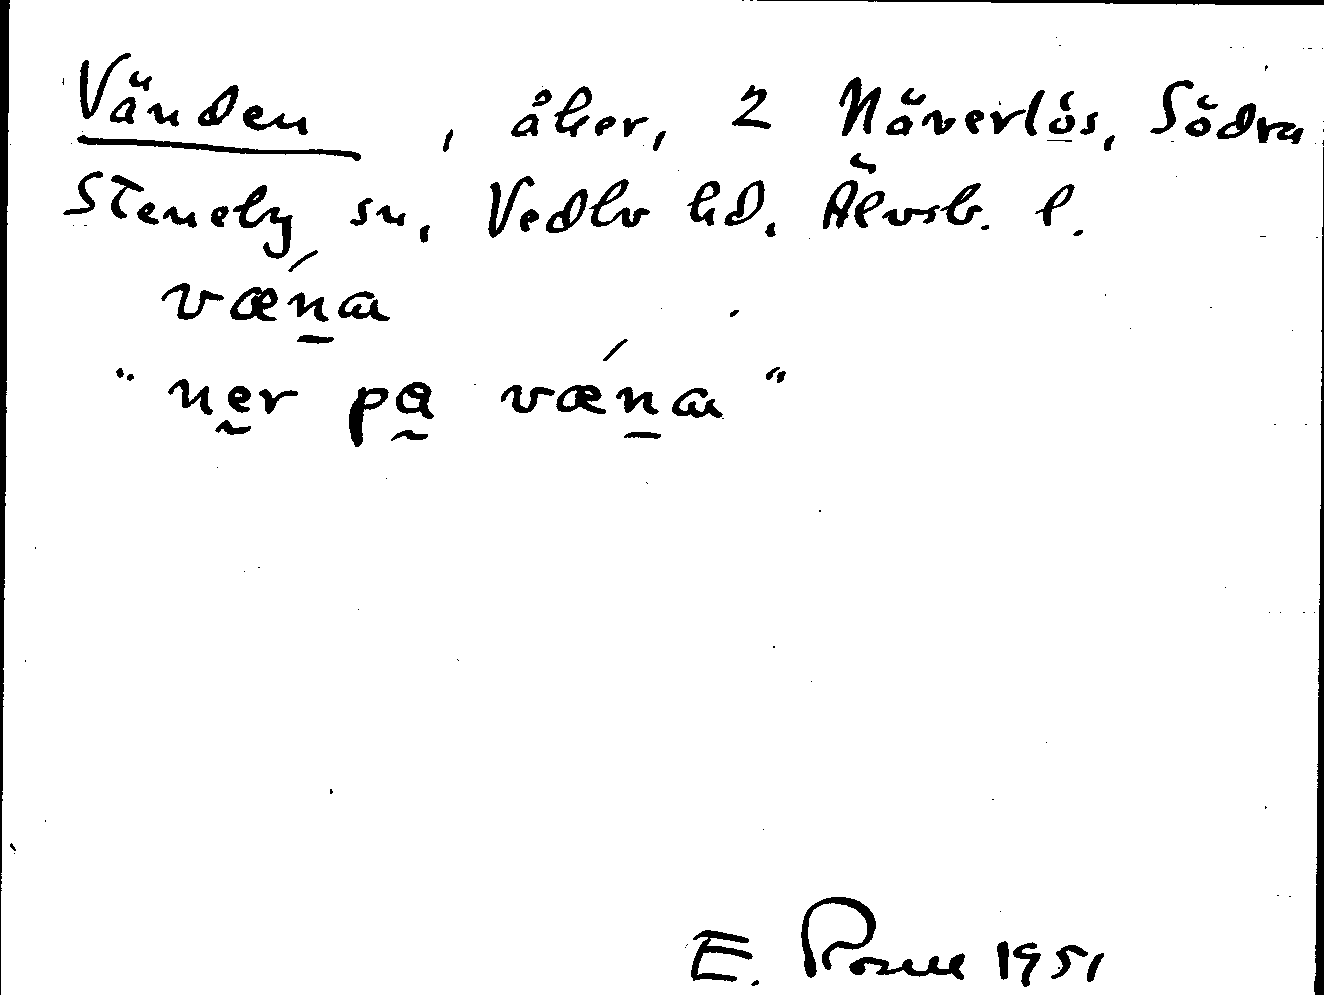 Vänden, åker, 2 Näverlös, Södra
Steneby sn, Vedbo hd. Älvsb. l.
vǽn̲a
"nḛr pa̰ vǽn̲a"
E. Rosell 1951